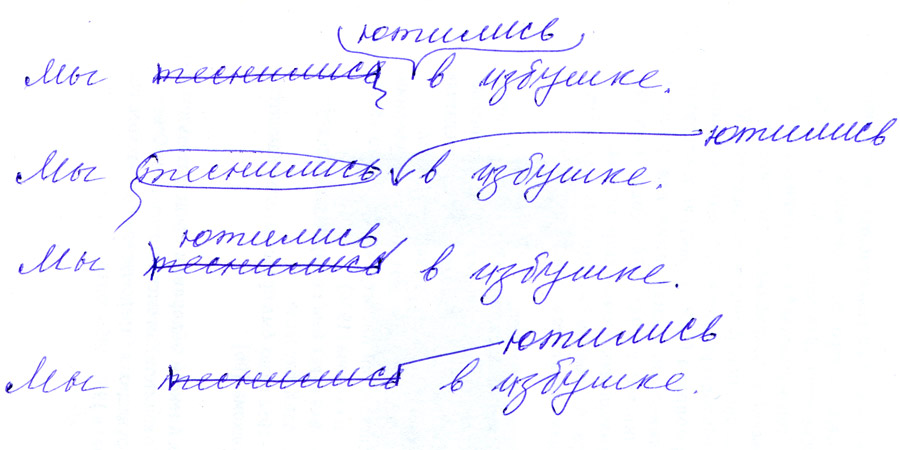 ютились
Мы теснились в избушке.
ютились
Мы теснились в избушке.
ютились
Мы теснились в избушке.
ютились
Мы теснились в избушке.